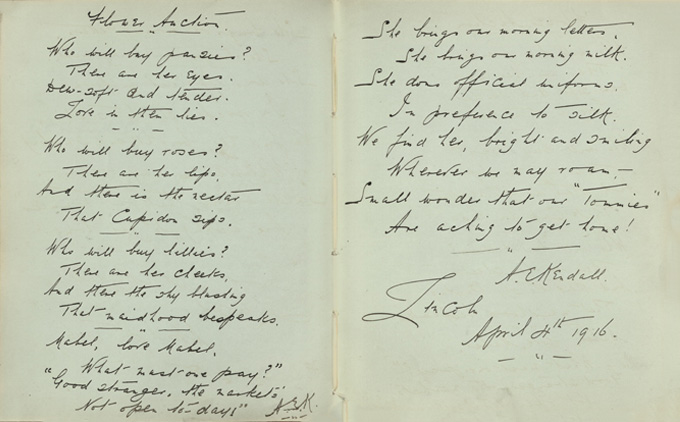 Flower Auction.
Who will buy pansies?
There are her Eyes.
Dew-soft and tender.
Love in them lies.
Who will buy roses?
There are her lips,
And there is the nectar
That Cupidon sips.
Who will buy lillies?
There are her cheeks,
And there the shy blushing
That maidhood bespeaks.
Mabel, love Mabel,
What must one pay?"
"Good stranger, the market's
Not open to-day!"
A.E.K.
She brings our morning letters,
She brings our morning milk.
She dons official uniforms
In preference to silk.
We find her, bright and smiling
Wherever we may roam –
Small wonder that our "Tommies"
Are aching to get home!
A.E Kendall.
Lincoln
April 4th 1916.